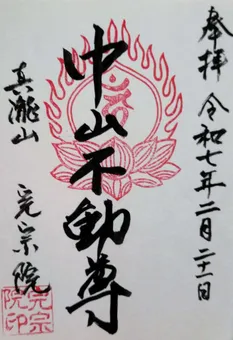 奉拝 令和七年二月二十二日
中山不動尊
真瀧山 完宗院
完宗
院印